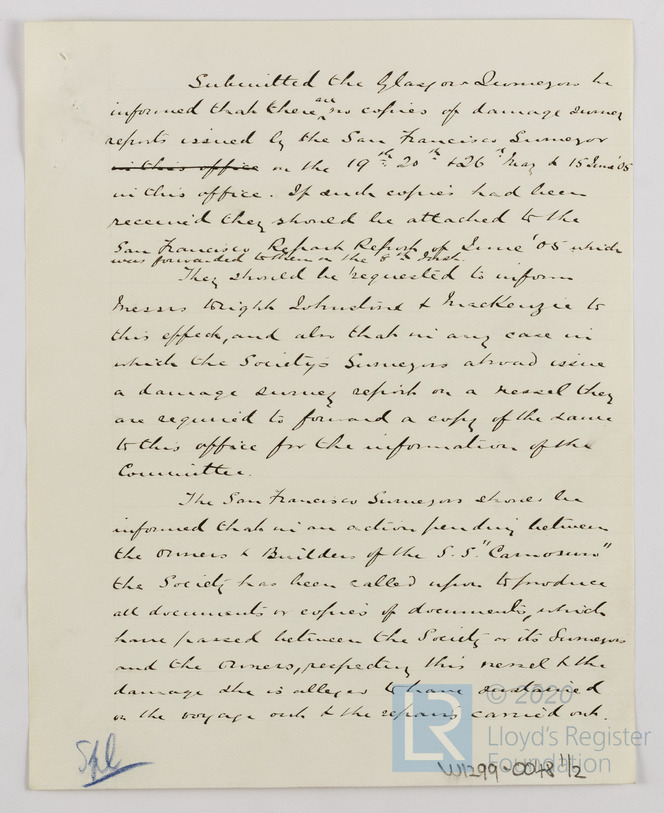 Submitted the Glasgow Surveyors be
informed that there are no copies of damage survey
reports issued by the San Francisco Surveyor
in this office on the 19th 20th & 26th May & 15 June '05
in this office. If such copies had been
received they should be attached to the
San Francisco Report Report of June '05 which
was forwarded to them on the 8th Inst.
They should be requested to inform
Messrs Wright Johnstone & Mackenzie to
this effect, and also that in any case in
which the Society's Surveyors abroad issue
a damage survey report on a vessel they
are required to forward a copy of the same
to this office for the information of the
Committee.
The San Francisco Surveyors should be
informed that in an action pending between
the Owners & Builders of the S.S. "Camosun"
the Society has been called upon to produce
all documents or copies of documents, which
have passed between the Society or its Surveyors
and the Owners, respecting this vessel & the
damage she is alleged to have sustained
on the voyage out & the repairs carried out.
© 2020
LR
Lloyd's Register
Foundation
W1299-0048 1/2